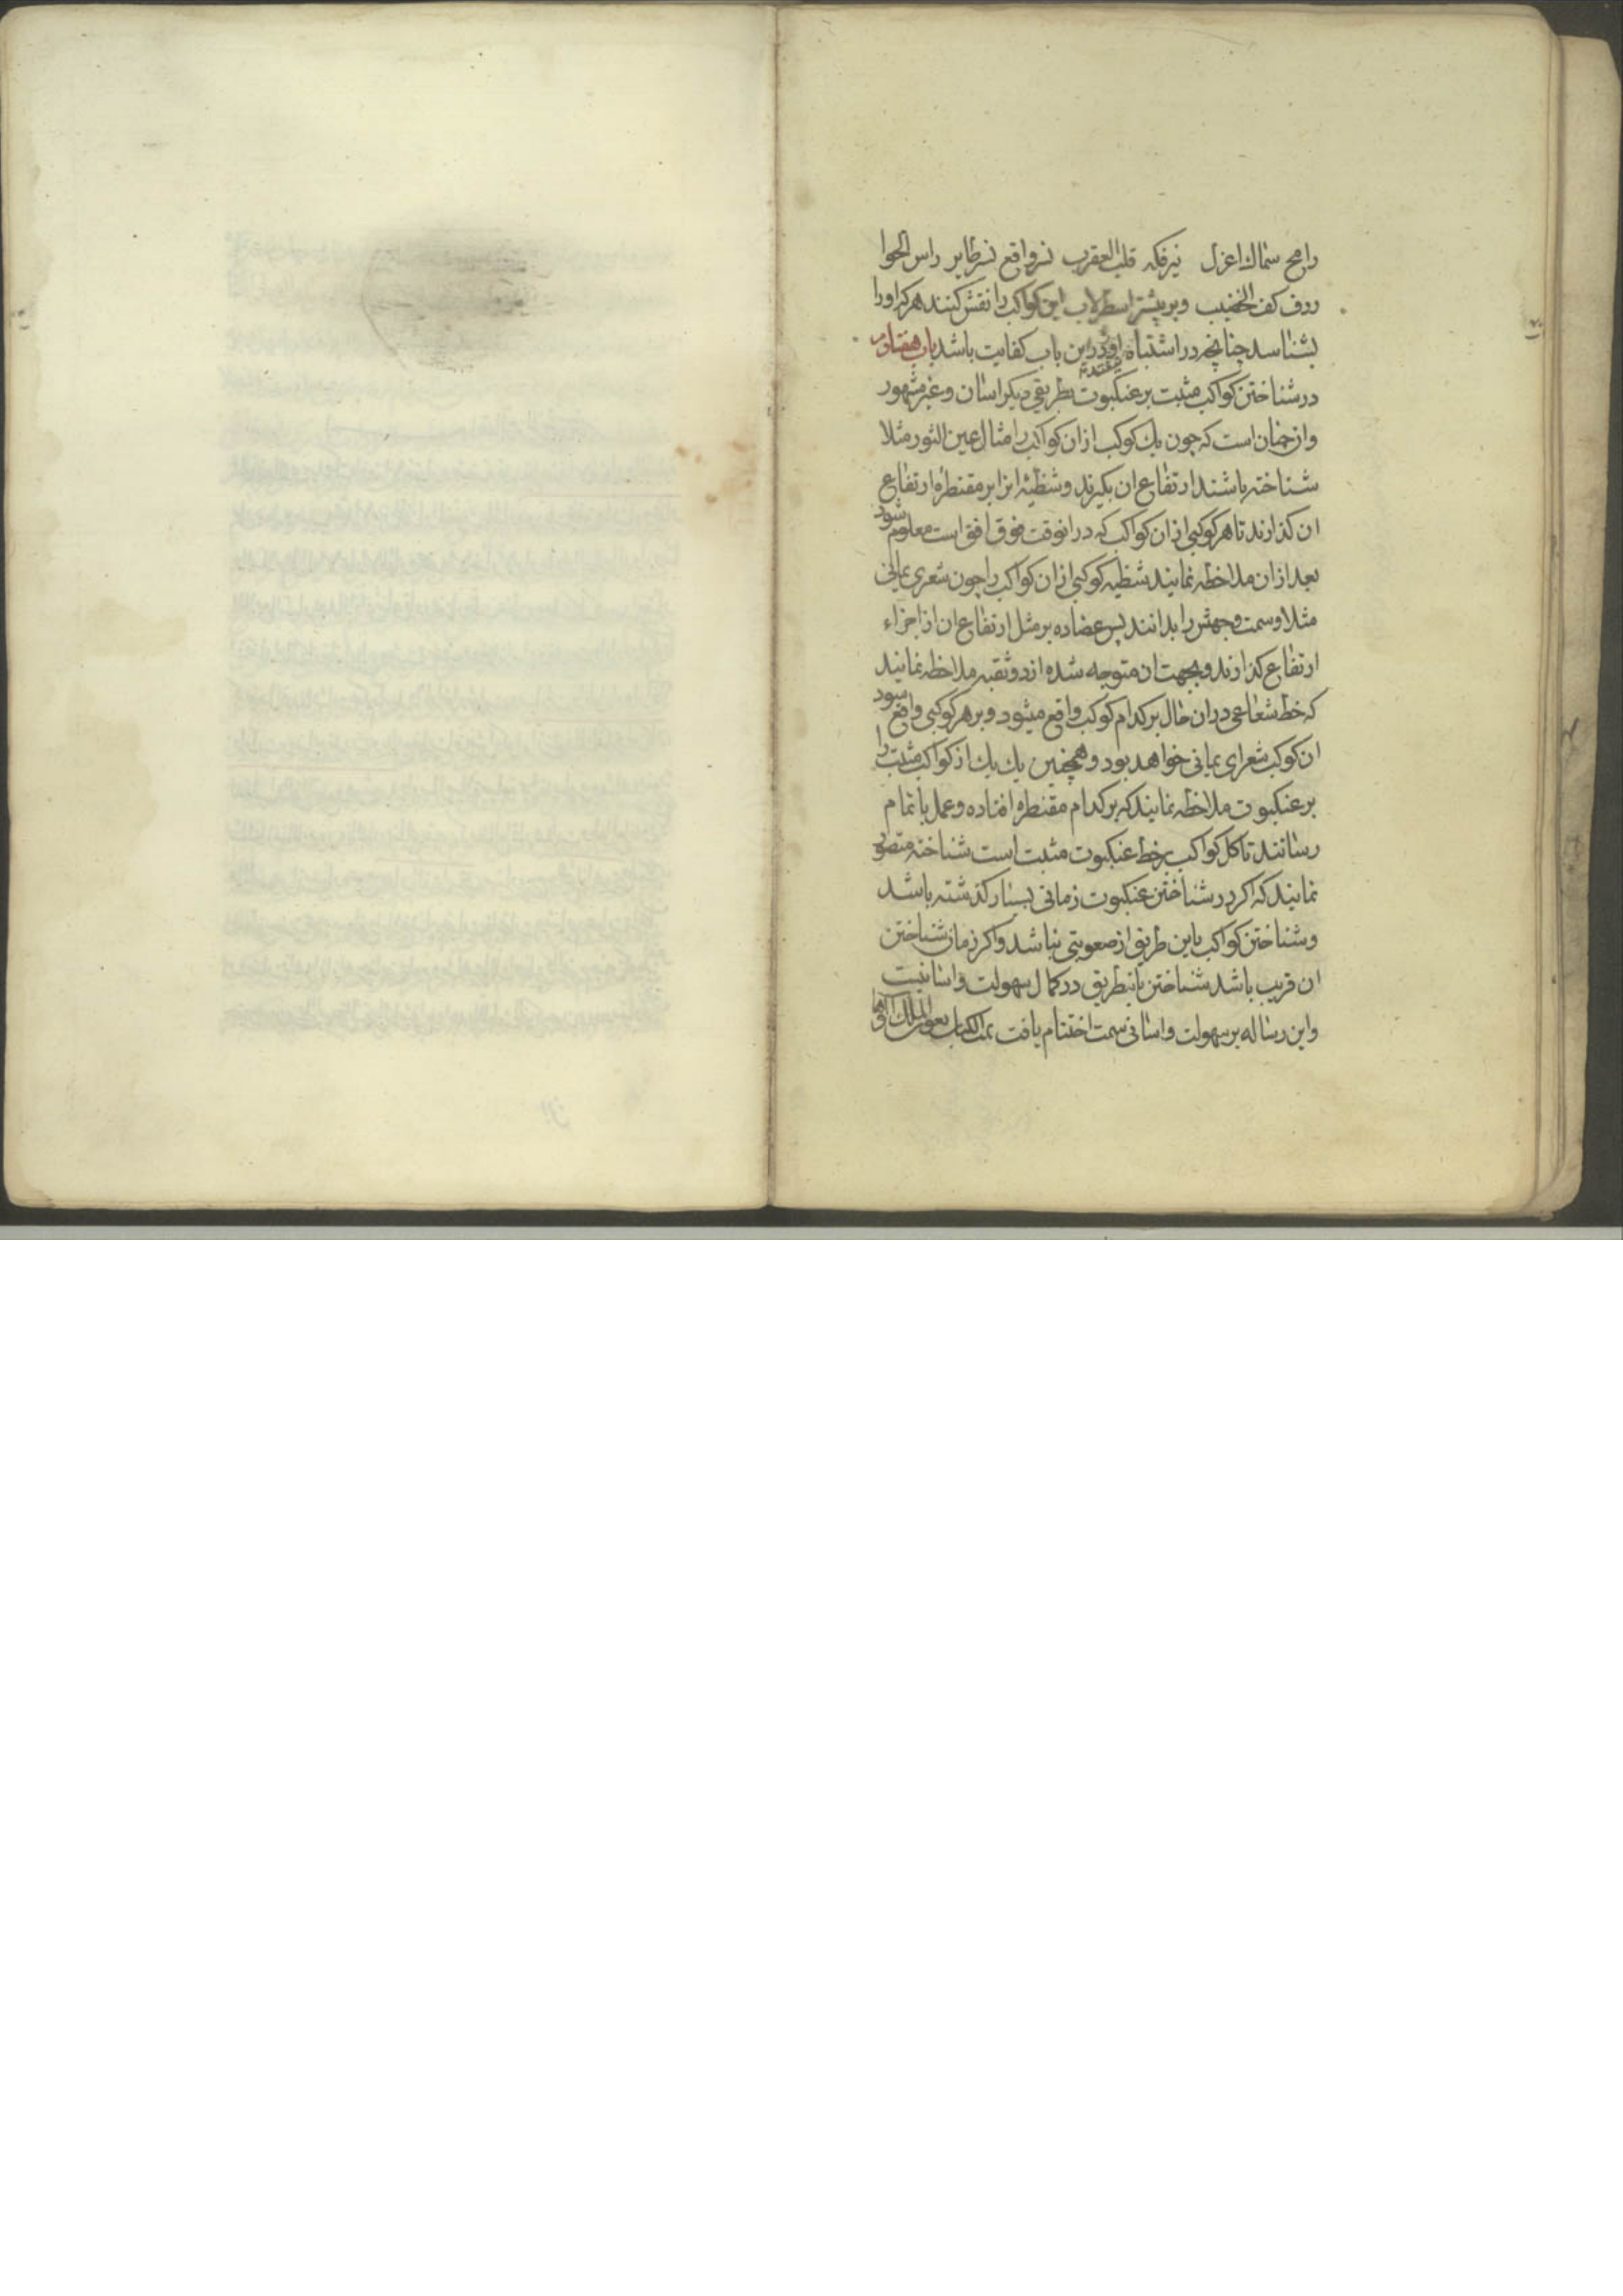 رامح سماك اعزل نيرفكه قلب العقرب نسر واقع نسر طاير راس الحوا
ردف كف الخضيب وبر بيشتر اسطرلاب اين كواكب را نقش كنند هر كه او را
بشناسد چنانچه در اشتباه درين باب كفايت باشد باب هفتادم
در شناختن كواكب مثبت بر عنكبوت بطريقى ديكر اسان و غير مشهور
وان چنان است كه چون يك كوكب از ان كواكب را مثال عين الثور مثلا
شناخته باشند ارتفاع ان بكيرند و شظيه انرا بر مقنطره ارتفاع
ان كذارند تا هر كوكبى از ان كواكب كه در انوقت فوق افق است معلوم شود
بعد از ان ملاحظه نمايند شظيه كوكبى از ان كواكب را چون شعرى يمانى
مثلا و سمت و جهتش را بدانند پس عضاده بر مثل ارتفاع ان از اجزاء
ارتفاع كذارند و بجهت ان متوجه شده از دو ثقبه ملاحظه نمايند
كه خط شعاعى در ان حال بر كدام كوكب واقع ميشود و بر هر كوكبى واقع شود
ان كوكب شعراى يمانى خواهد بود و همچنين يك يك از كواكب مثبت را
بر عنكبوت ملاحظه نمايند كه بر كدام مقنطره افتاده و عمل باتمام
رسانند تا كل كواكب بر خط عنكبوت مثبت است شناخته متصور
نمايند كه اكر در شناختن عنكبوت زمانى بسيار كذشته باشد
و شناختن كواكب باين طريق از صعوبتى نباشد و اكر زمان شناختن
ان قريب باشد شناختن بانطريق در كمال سهولت و اسانيست
و اين رساله بر سهولت و اسانى سمت اختتام يافت تمت الكتاب بعون الملك